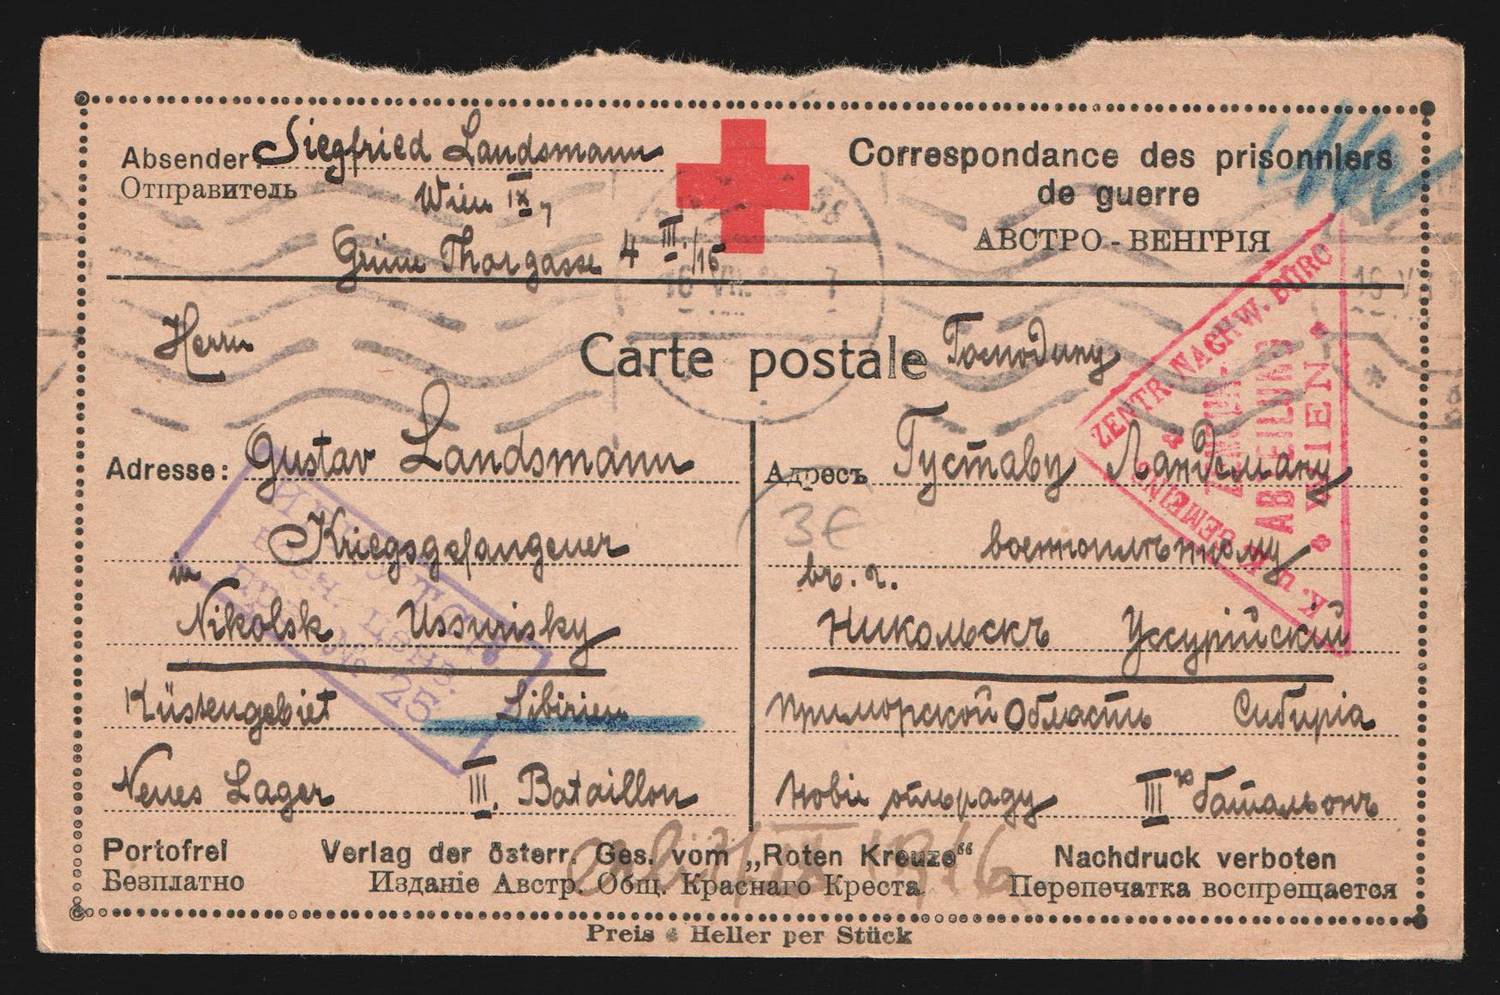 Absender: Siegfried Landsmann
Отправитель
Wien IX,
Grüne Thorgasse 4 III./16
Correspondance des prisonniers
de guerre
АВСТРО-ВЕНГРІЯ
Herrn
Carte postale
Господину
Adresse: Gustav Landsmann
Kriegsgefangener
in
Nikolsk Ussurisky
Küstengebiet Sibirien
Neues Lager III. Bataillon
Адресъ Густаву Ландсману
военноплѣнному
въ. г.
Никольскъ Уссурійскій
Приморской Область Сибиріа
III Батальонъ
ZENTR. NACHW. BÜRO
ABTEILUNG
WIEN
K. u. K. GEMEINS.
ВОЕН. ЦЕНЗ.
№ 25
3€
16 VII
Portofrei
Безплатно
Verlag der österr. Ges. vom „Roten Kreuze“
Изданіе Австр. Общ. Краснаго Креста
Nachdruck verboten
Перепечатка воспрещается
IX 1916
Preis Heller per Stück